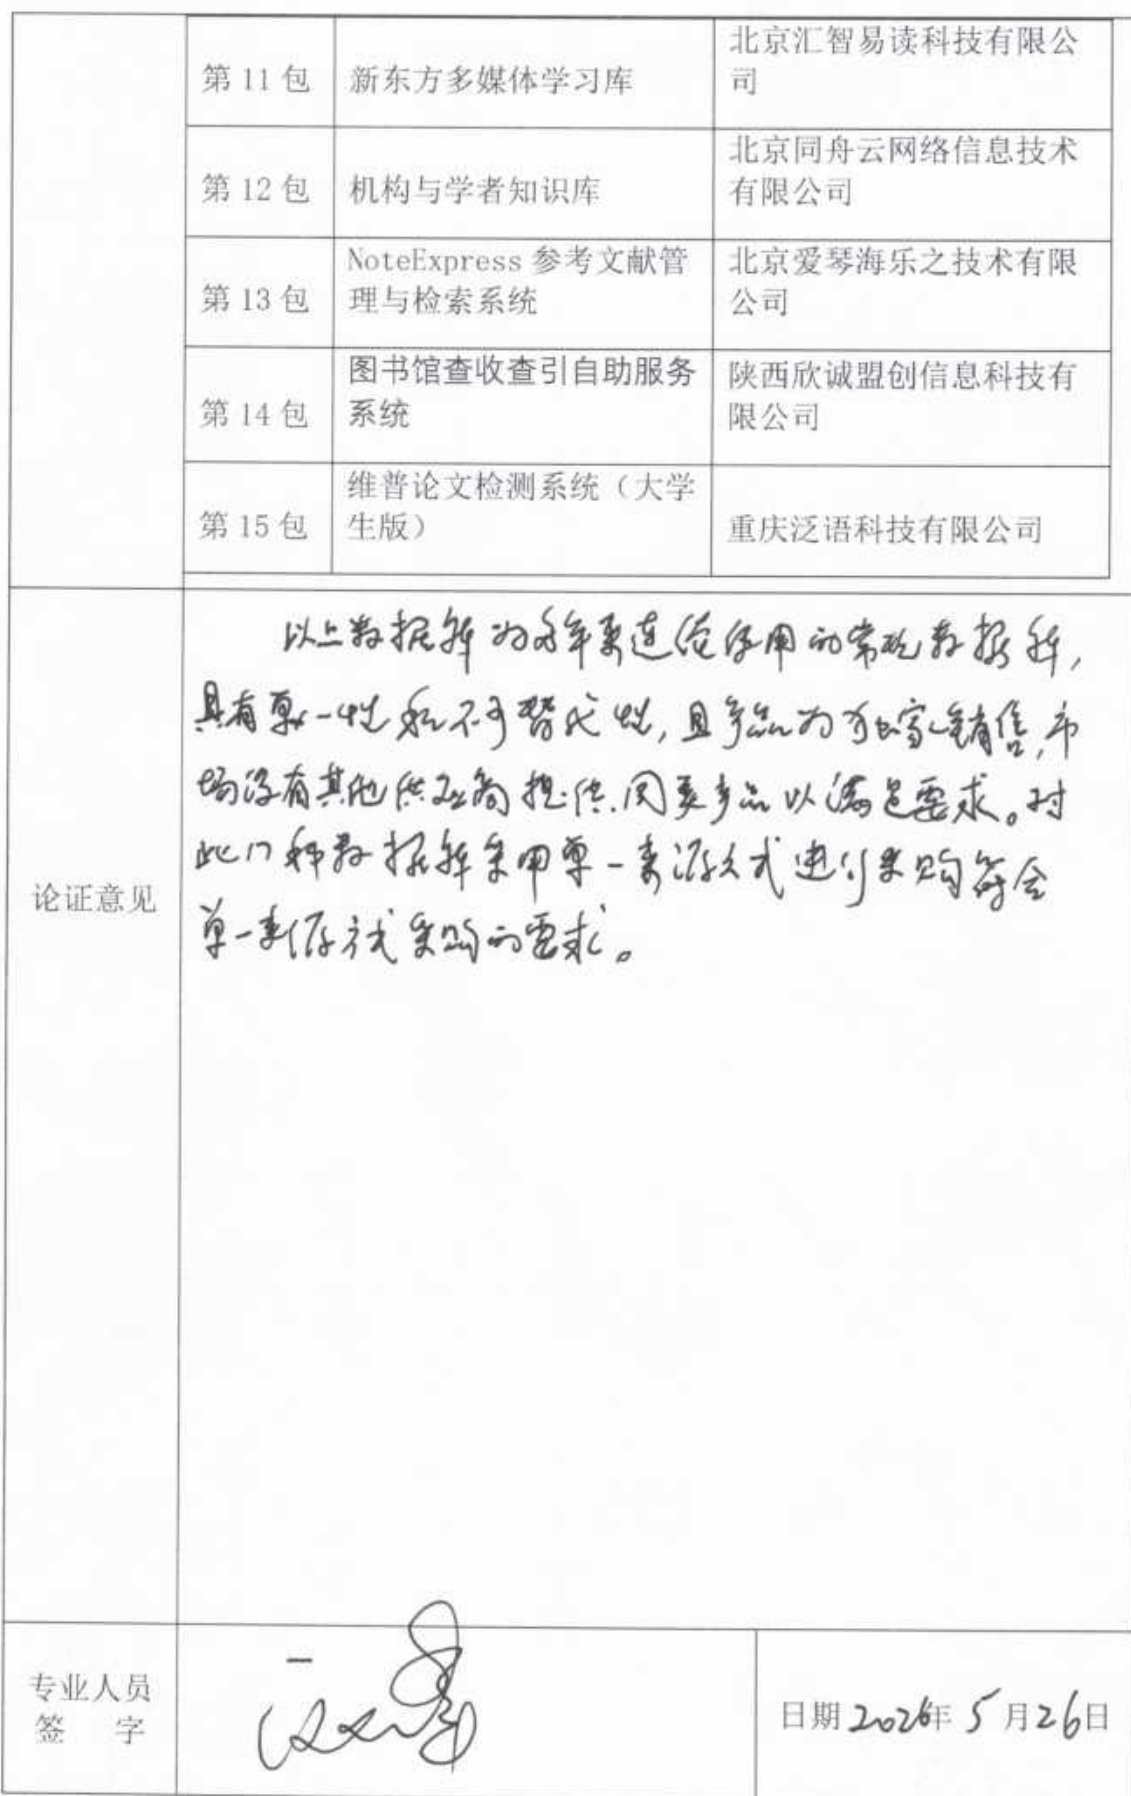 第 11 包
新东方多媒体学习库
北京汇智易读科技有限公
司
第 12 包
机构与学者知识库
北京同舟云网络信息技术
有限公司
第 13 包
NoteExpress 参考文献管
理与检索系统
北京爱琴海乐之技术有限
公司
第 14 包
图书馆查收查引自助服务
系统
陕西欣诚盟创信息科技有
限公司
第 15 包
维普论文检测系统（大学
生版）
重庆泛语科技有限公司
论证意见
以上数据库为多年来连续使用的常规数据库，
具有单一性和不可替代性，且产品为独家销售，市
场没有其他供应商提供同类产品以满足要求。对
此17种数据库采用单一来源方式进行采购符合
单一来源方式采购的要求。
专业人员
签 字
日期 2026年 5 月 26日